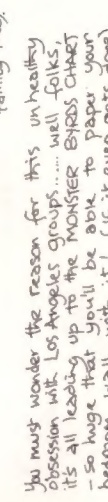 family tree).
You must wonder the reason for this unhealthy
obsession with Los Angeles groups...... well folks,
it's all leading up to the MONSTER BYRDS CHART
- so huge that you'll be able to paper your